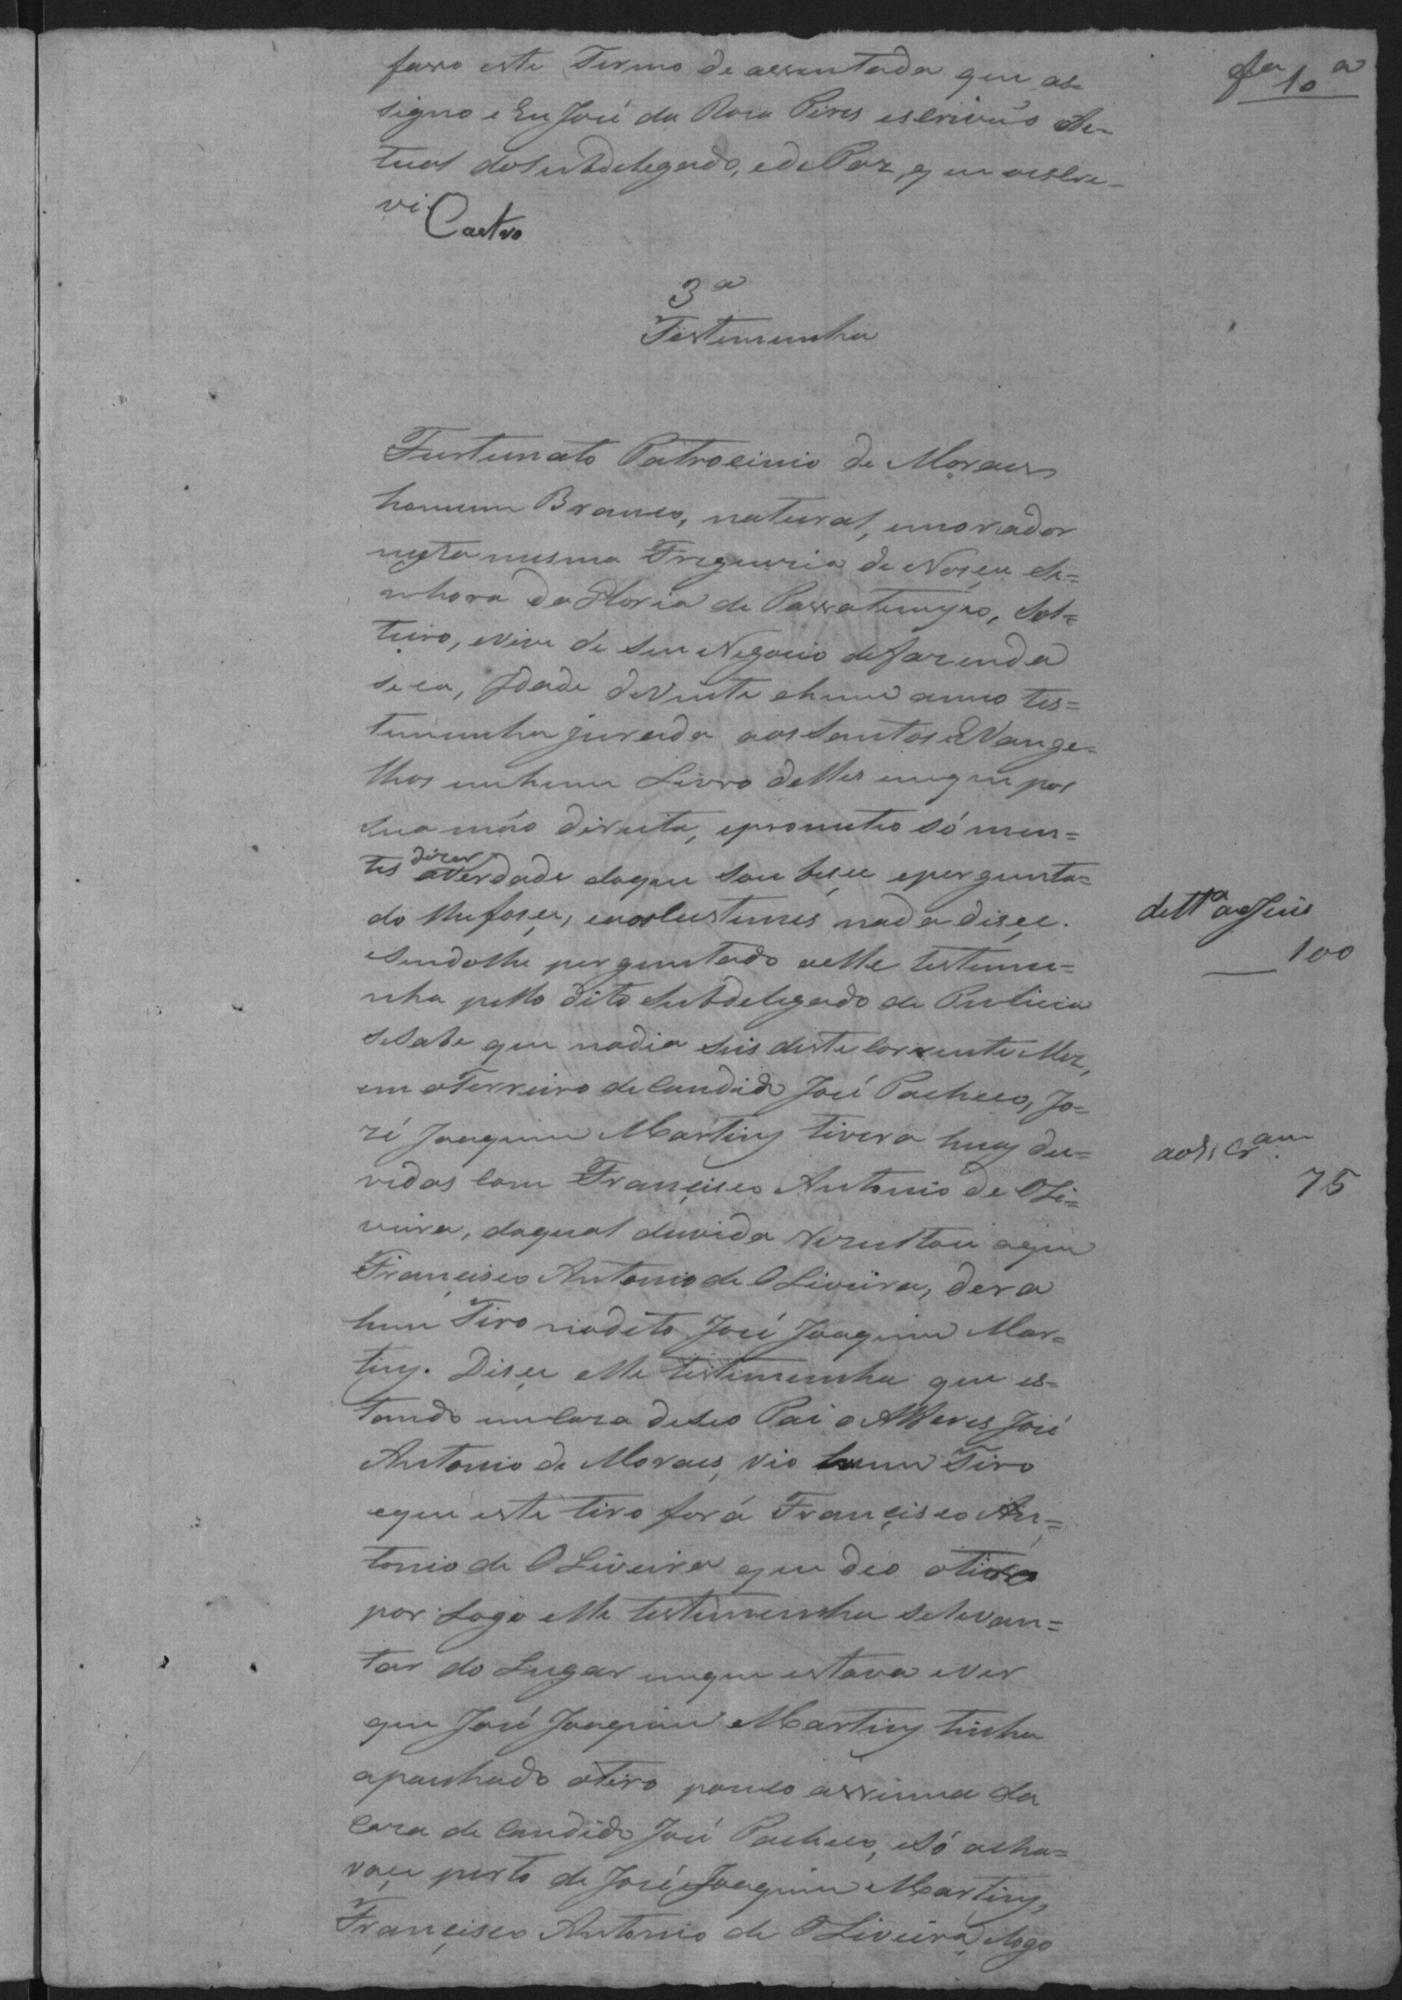 faso este Termo de assentada que as=
signo e Eu José da Rosa Pires escrivão Ac-
tual do Subdelegado, e de Paz, que o escre-
vi
Castro
fa 10 a
3ª
Testemunha
Furtunato Patrocinio de Moraes
homem Branco, natural, emorador
nesta mesma Freguezia de Noseu Se=
nhora da Gloria de Passatempo, Sol=
teiro, evive de seu Negocio defazenda
seca, Idade deVinte ehum anno tes=
temunha jurada aos Santos EVange=
lhos emhum Livro delles emque pos
sua mão direita, eprometeo só men=
tes dizer averdade doque soubeseu epergunta=
do lhefoseu, eaoscustumes nada diseu.
Sendolhe perguntado aelle testemu=
nha pello dito Subdelegado de Pulicia
seSabe que nodia seis deste Corrente Mez,
em oTerreiro de Candido José Pacheco, Jo=
zé Joaquim Martins tivera huas du=
vidas Com Francisco Antonio de OLi=
veira, daqual duvida Rezultou aque
Francisco Antonio de OLiveira, dera
hum Tiro nodito José Joaquim Mar=
tins. Diseu elle testemunha que es=
tando emCaza deseo Pai o Alferes José
Antonio de Moraes, vio hum Tiro
eque este tiro forá Francisco An=
tonio de OLiveira que deo otiro
por Logo elle testemunha selevan=
tar do Lugar emque estava ever
que José Joaquim Martins tinha
apanhado otiro pouco assima da
Caza de Candido José Pacheco, esó acha=
vaçe perto de José Joaquim Martins,
Francisco Antonio de OLiveira, elogo
dellª ao Juis
100
ao Escram
75